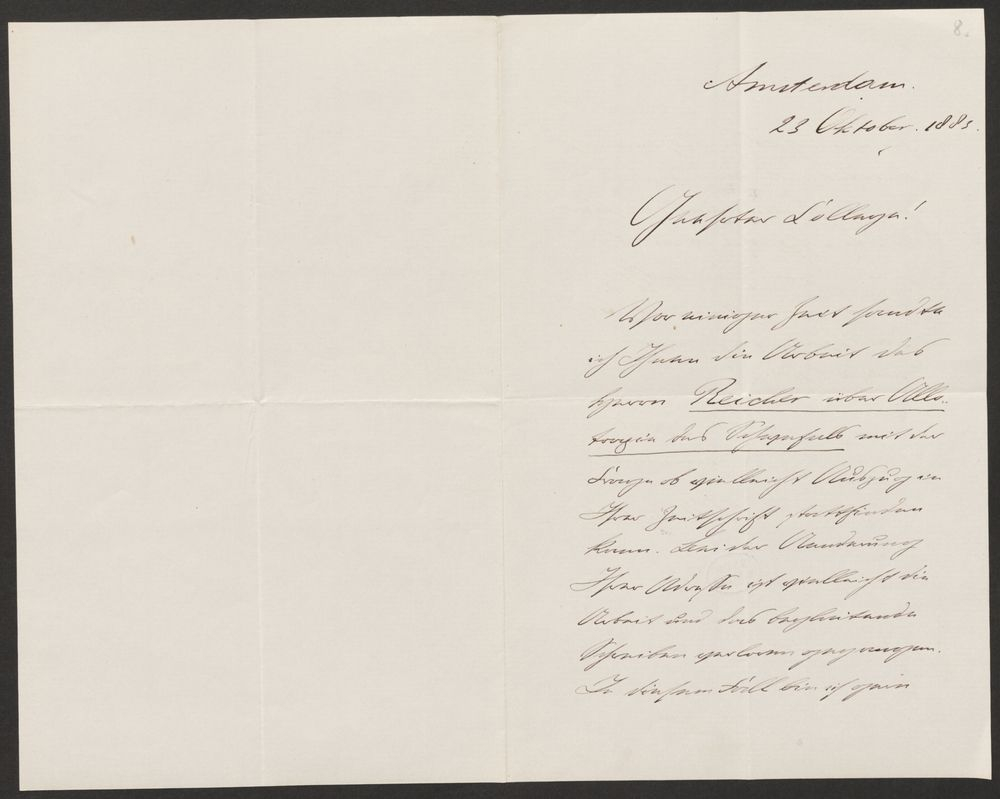 8.
Amsterdam.
23 Oktober. 1883.
Geehrter College!
Vor einiger Zeit sandte
ich Ihnen die Arbeit des
Herrn Reicher über Allo-
tropie des Schwefels mit der
Frage ob vielleicht Auszug in
Ihrer Zeitschrift stattfinden
kann. Bei der Aenderung
Ihrer Adresse ist vielleicht die
Arbeit und das begleitende
Schreiben verloren gegangen.
In diesem Fall bin ich gern